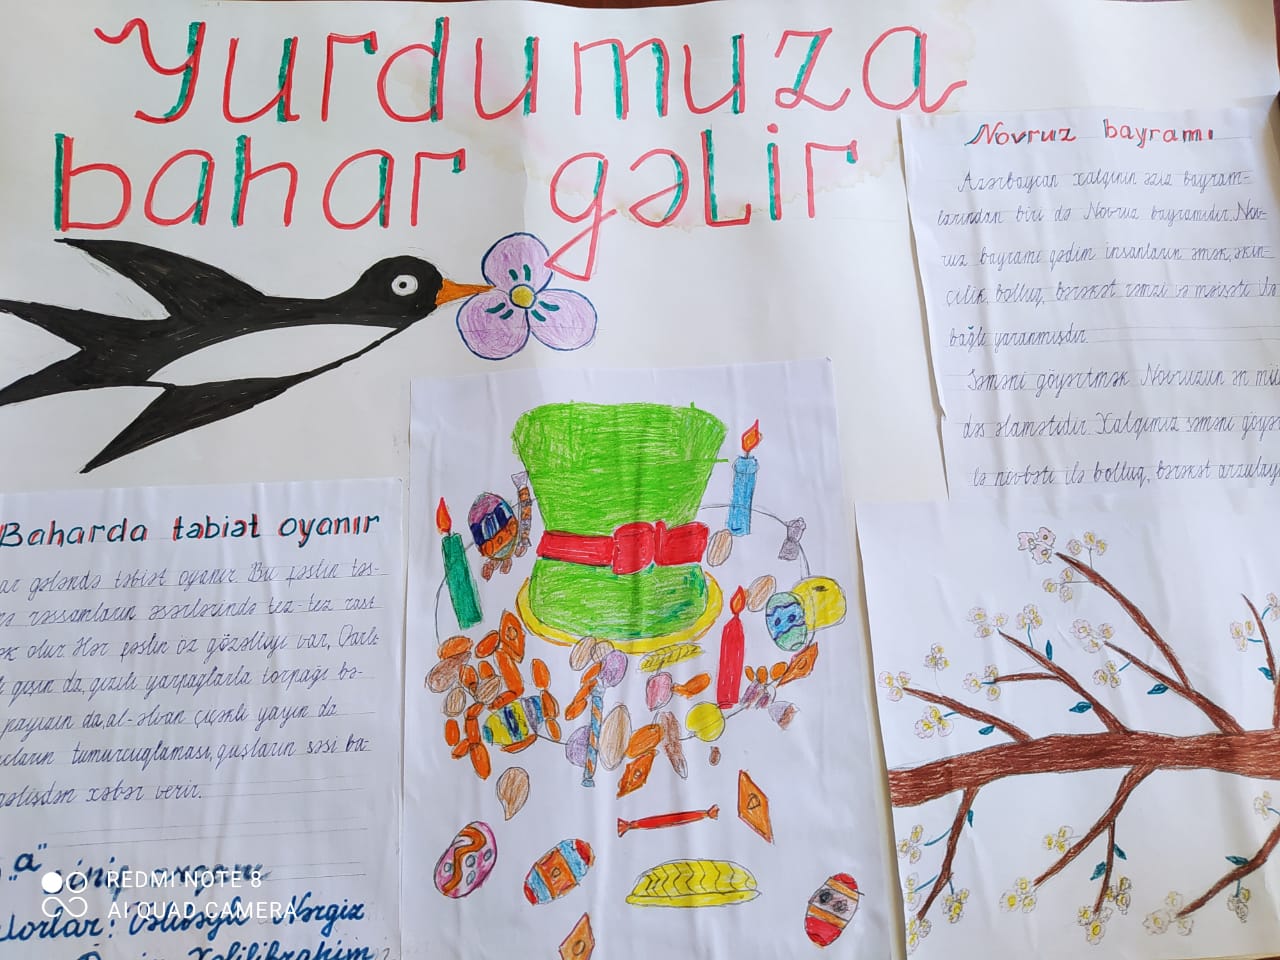 Yurdumuza
bahar gəlir
Novruz bayramı
Azərbaycan xalqının əziz bayram-
larından biri də Novruz bayramıdır. Nov-
ruz bayramı qədim insanların əmək, əkin-
çilik, bolluq, bərəkət rəmzi və məişəti ilə
bağlı yaranmışdır.
Səməni göyərtmək Novruzun ən mü
dəs əlamətidir. Xalqımız səməni göyər
lə növbəti ilə bolluq, bərəkət arzulay
Baharda təbiət oyanır
ar gələndə təbiət oyanır. Bu fəslin təs-
rəssamların əsərlərində tez-tez rast
ək olur. Hər fəslin öz gözəlliyi var. Qarlı
qışın da, qızılı yarpaqlarla torpağı bə-
payızın da, al-əlvan çiçəkli yayın da
ların tumurcuqlaması, quşların səsi ba-
gəlişdən xəbər verir.
"a"
REDMI NOTE 8
AI QUAD CAMERA
Nərgiz
Xəlilibrahim